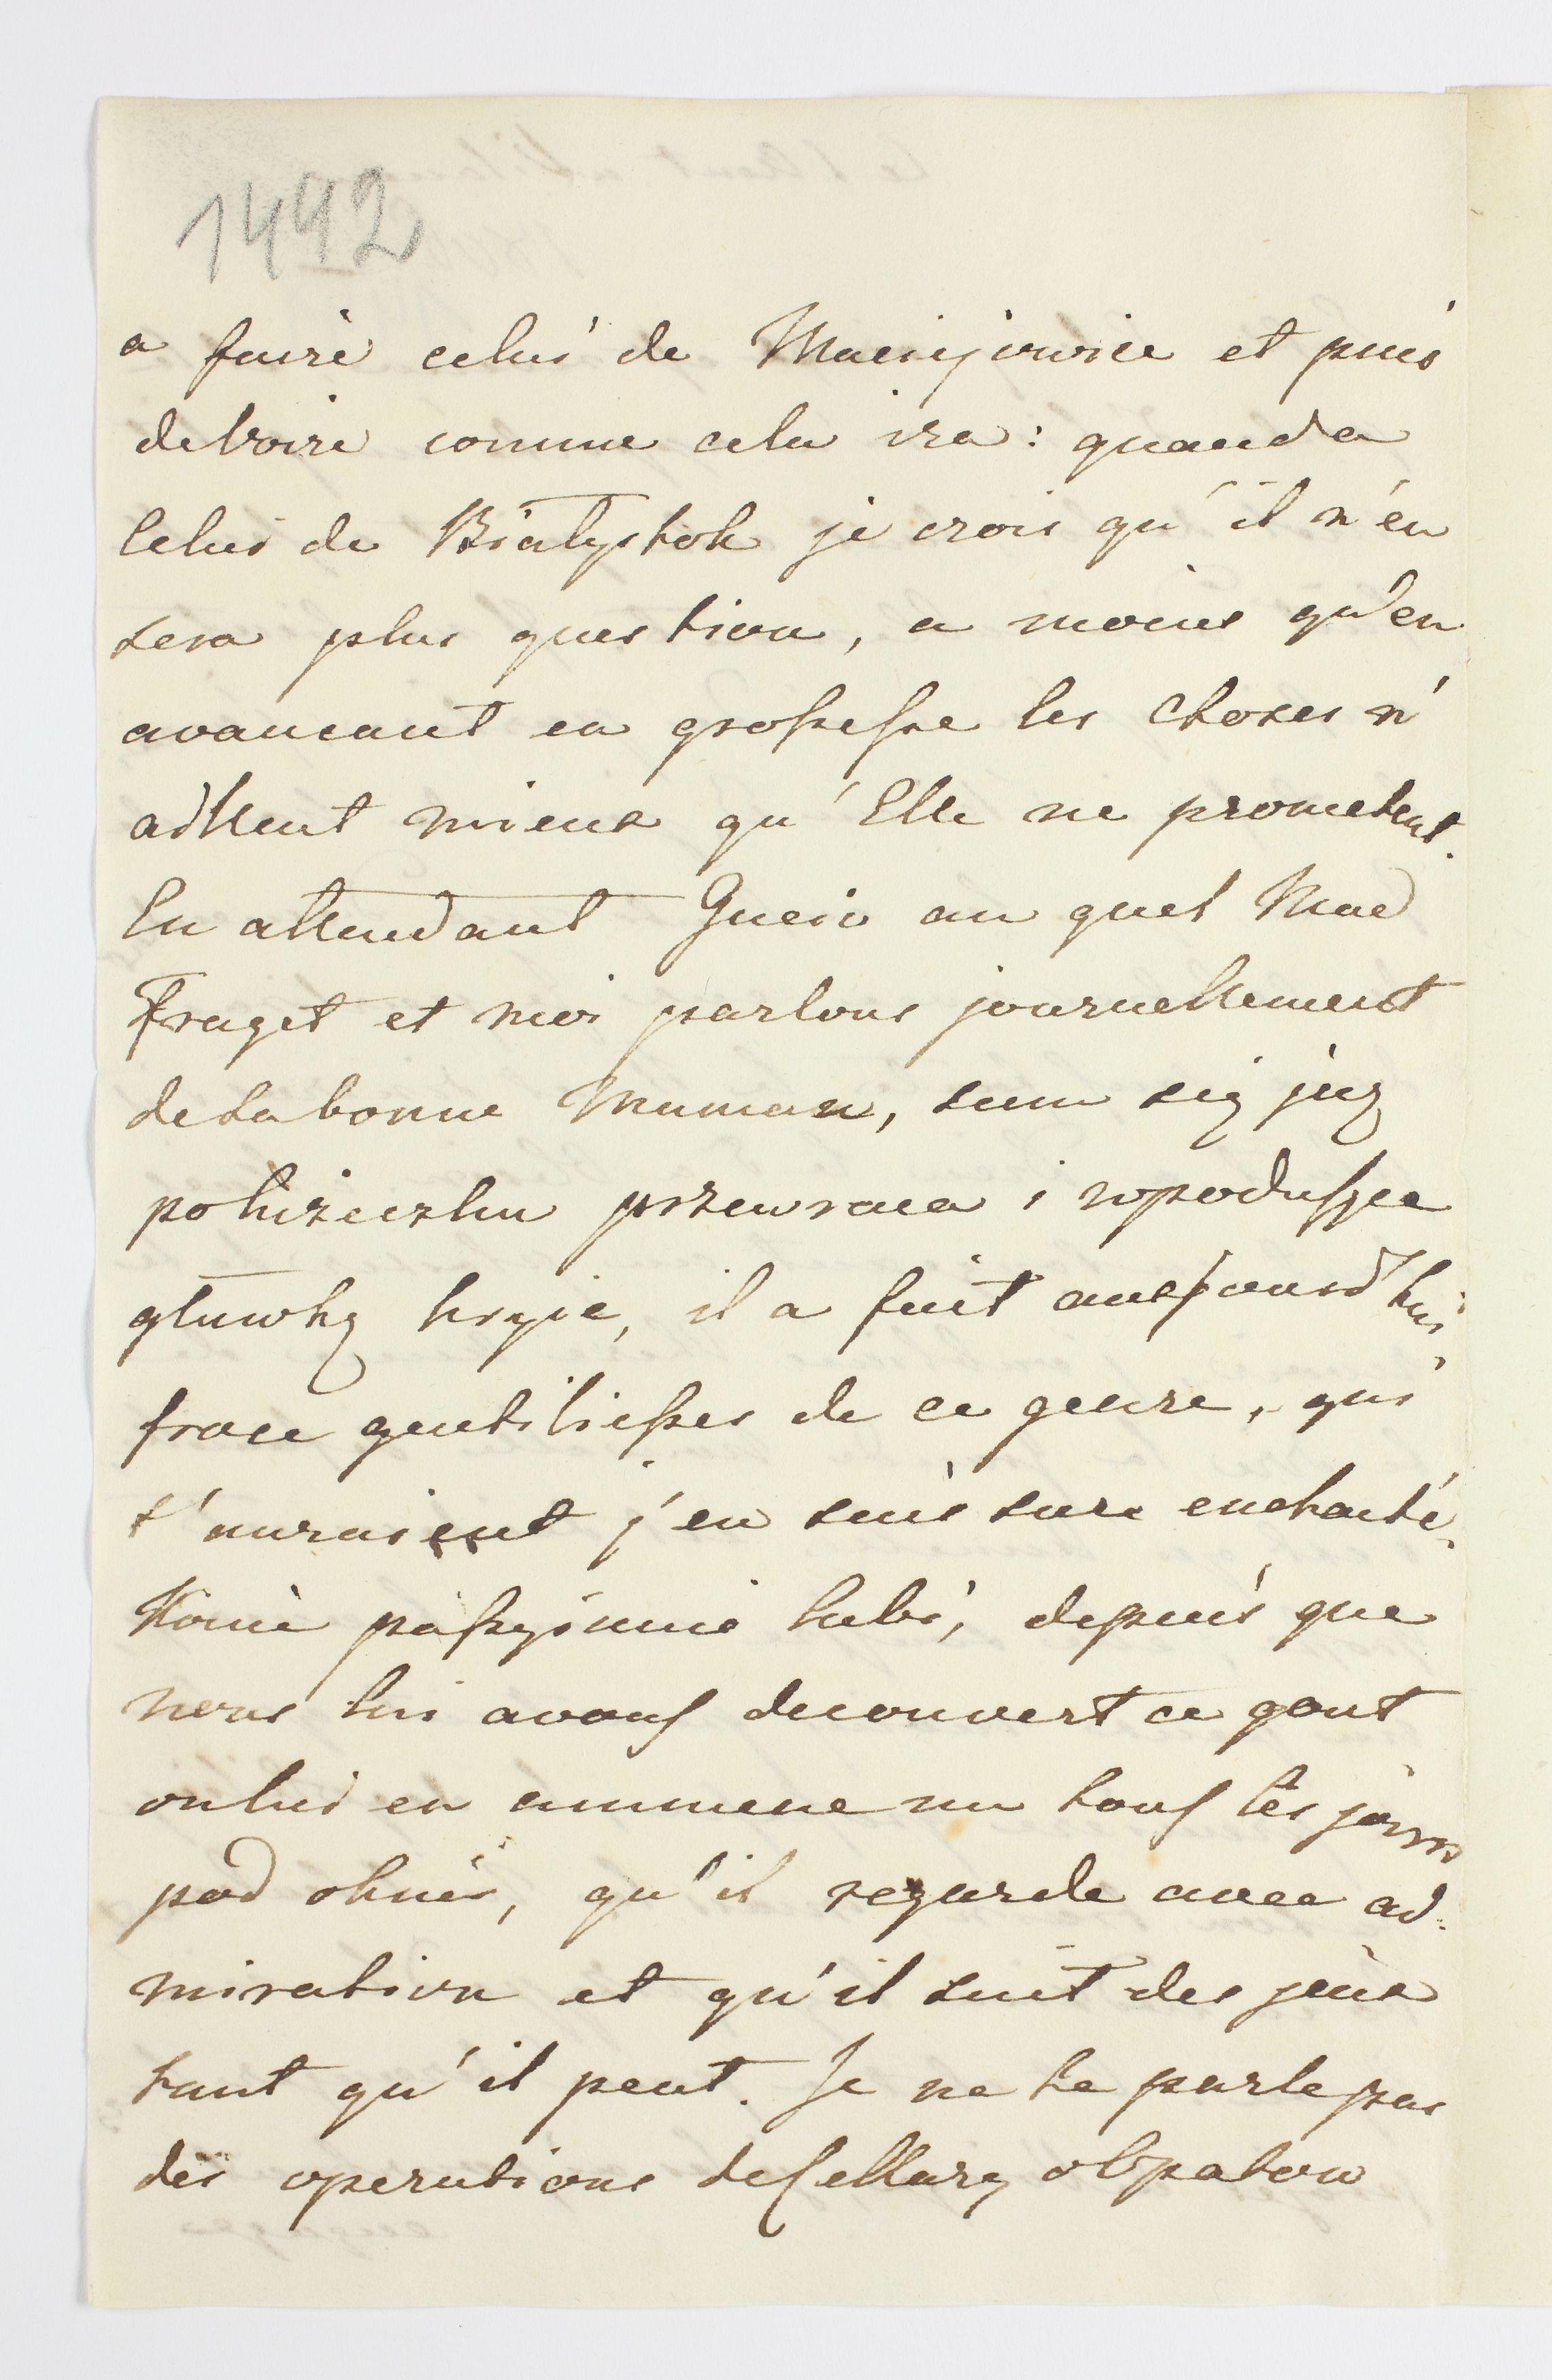 1442
a faire celui de Maciejowice et puis
de voire comme cela ira: quand a
celui de Białystok je crois qu'il n'en
sera plus question, a moins qu'en
avancant en grossesse les choses n'
aillent mieux qu'Elle ne prometent.
En attendant Gucio au quel Mad
Fraget et moi parlons journellement
de sa bonne Maman, sam się już
po łóżeczku przewraca i w poduszce
główkę kryje, il a fait aujourd'hui
force gentiliesses de ce genre, qui
t'auraient j'en suis sure enchanté,
Konie passyjonnie lubi, depuis que
nous lui avons decouvert ce gout
on lui en ammene un tous les jours
pod okno, qu'il regarde avec ad:
miration et qu'il suit des yeux
tant qu'il peut. Je ne te parle pas
des operations de Cellary